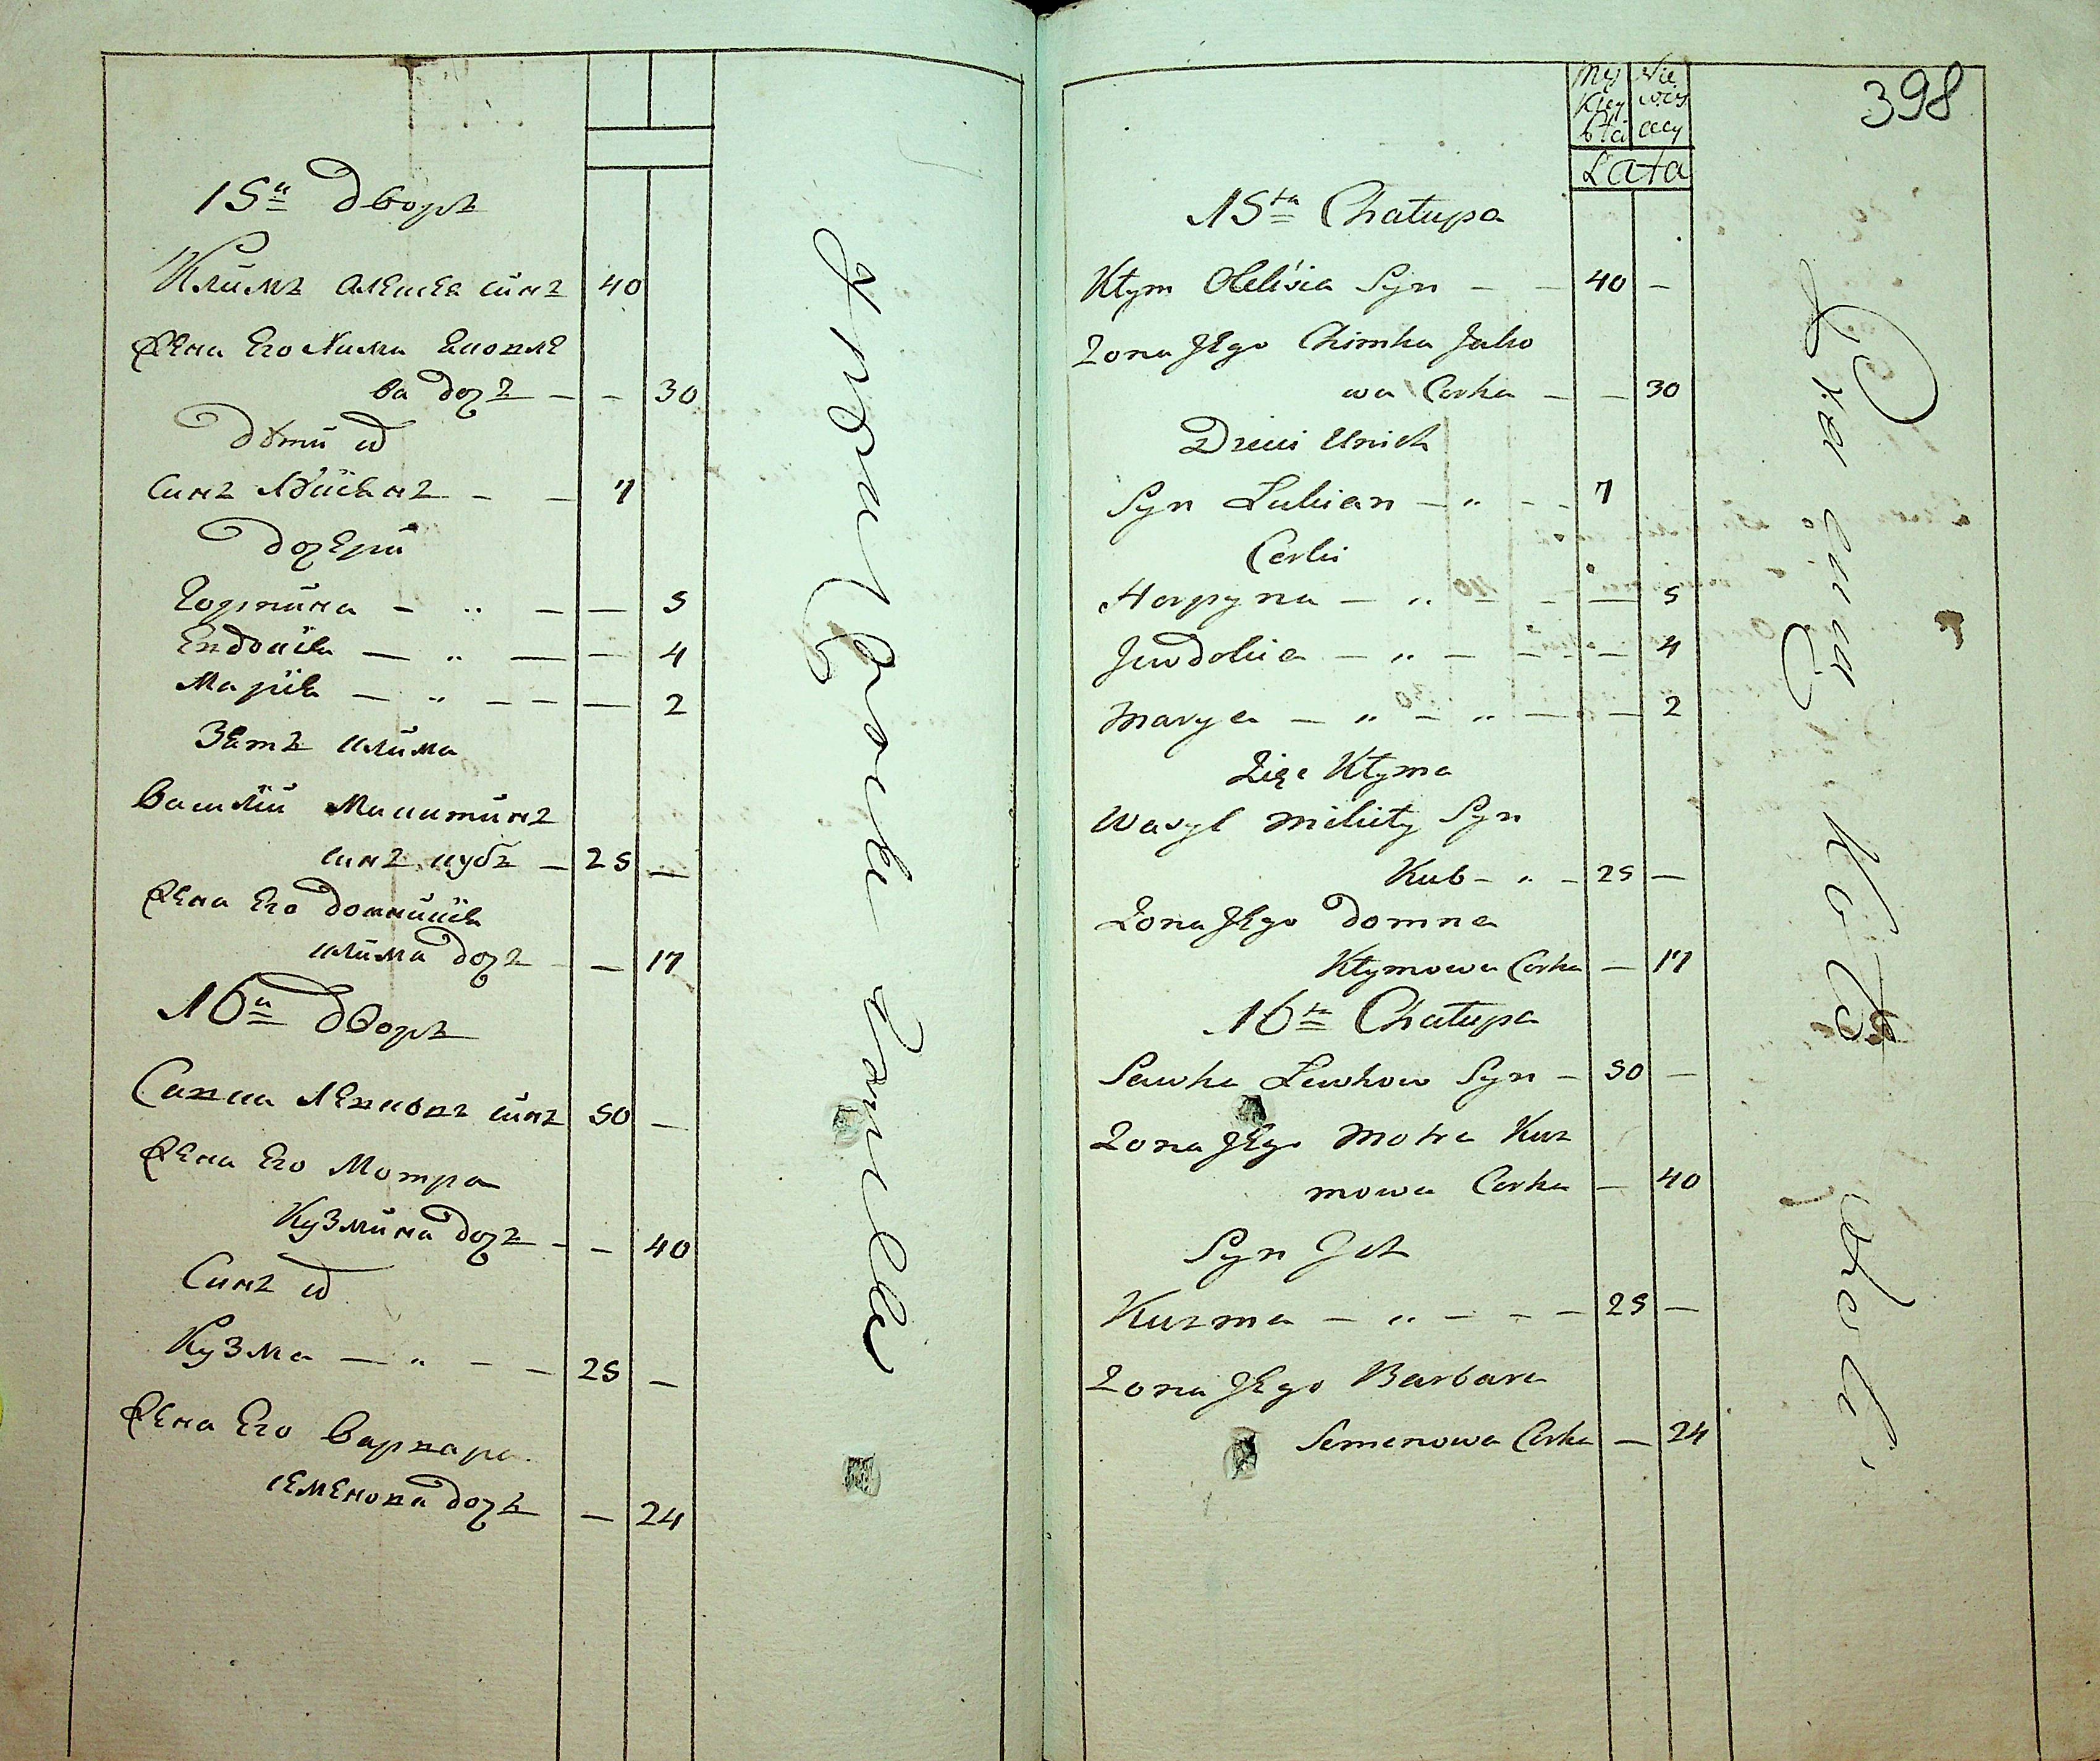 15а Дворъ
Климъ Алексея синъ 40
Жена Его Хима Яковле
ва дочъ — — 30
Дѣти ихъ
Синъ Лукиянъ — — 7
Дочери
Горпина — „ — — 5
Евдокия — „ — — 4
Мария — „ — — — 2
Зять Клима
Василий Микитинъ
синъ Кубъ — 25 —
Жена Его Домникия
Клима дочъ — 17
16а Дворъ
Савка Левковъ синъ 50 —
Жена Его Мотра
Кузмина дочъ — — 40
Синъ ихъ
Кузма — „ — — 25 —
Жена Его Варвара
Семенова дочъ — 24
398
Męż Nie
Kiey wias
Płci ciey
Lata
15ta Chałupa
Kłym Olexia Syn — — 40 —
Zona Jego Chimka Jako
wa Corka — — 30
Dzieci Unich
Syn Łukian — „ — — 7
Corki
Horpyna — „ — — — 5
Jewdokia — „ — — — 4
Marya — „ — „ — — 2
Zięc Kłyma
Wasyl Mikity Syn
Kub — „ — 25 —
Zona Jego Domna
Kłymowa Corka — 17
16ta Chałupa
Sawka Lewkow Syn — 50 —
Zona Jego Motra Kuz
mowa Corka — 40
Syn Ich
Kuzma — „ — — — 25 —
Zona Jego Barbara
Semenowa Corka — 24